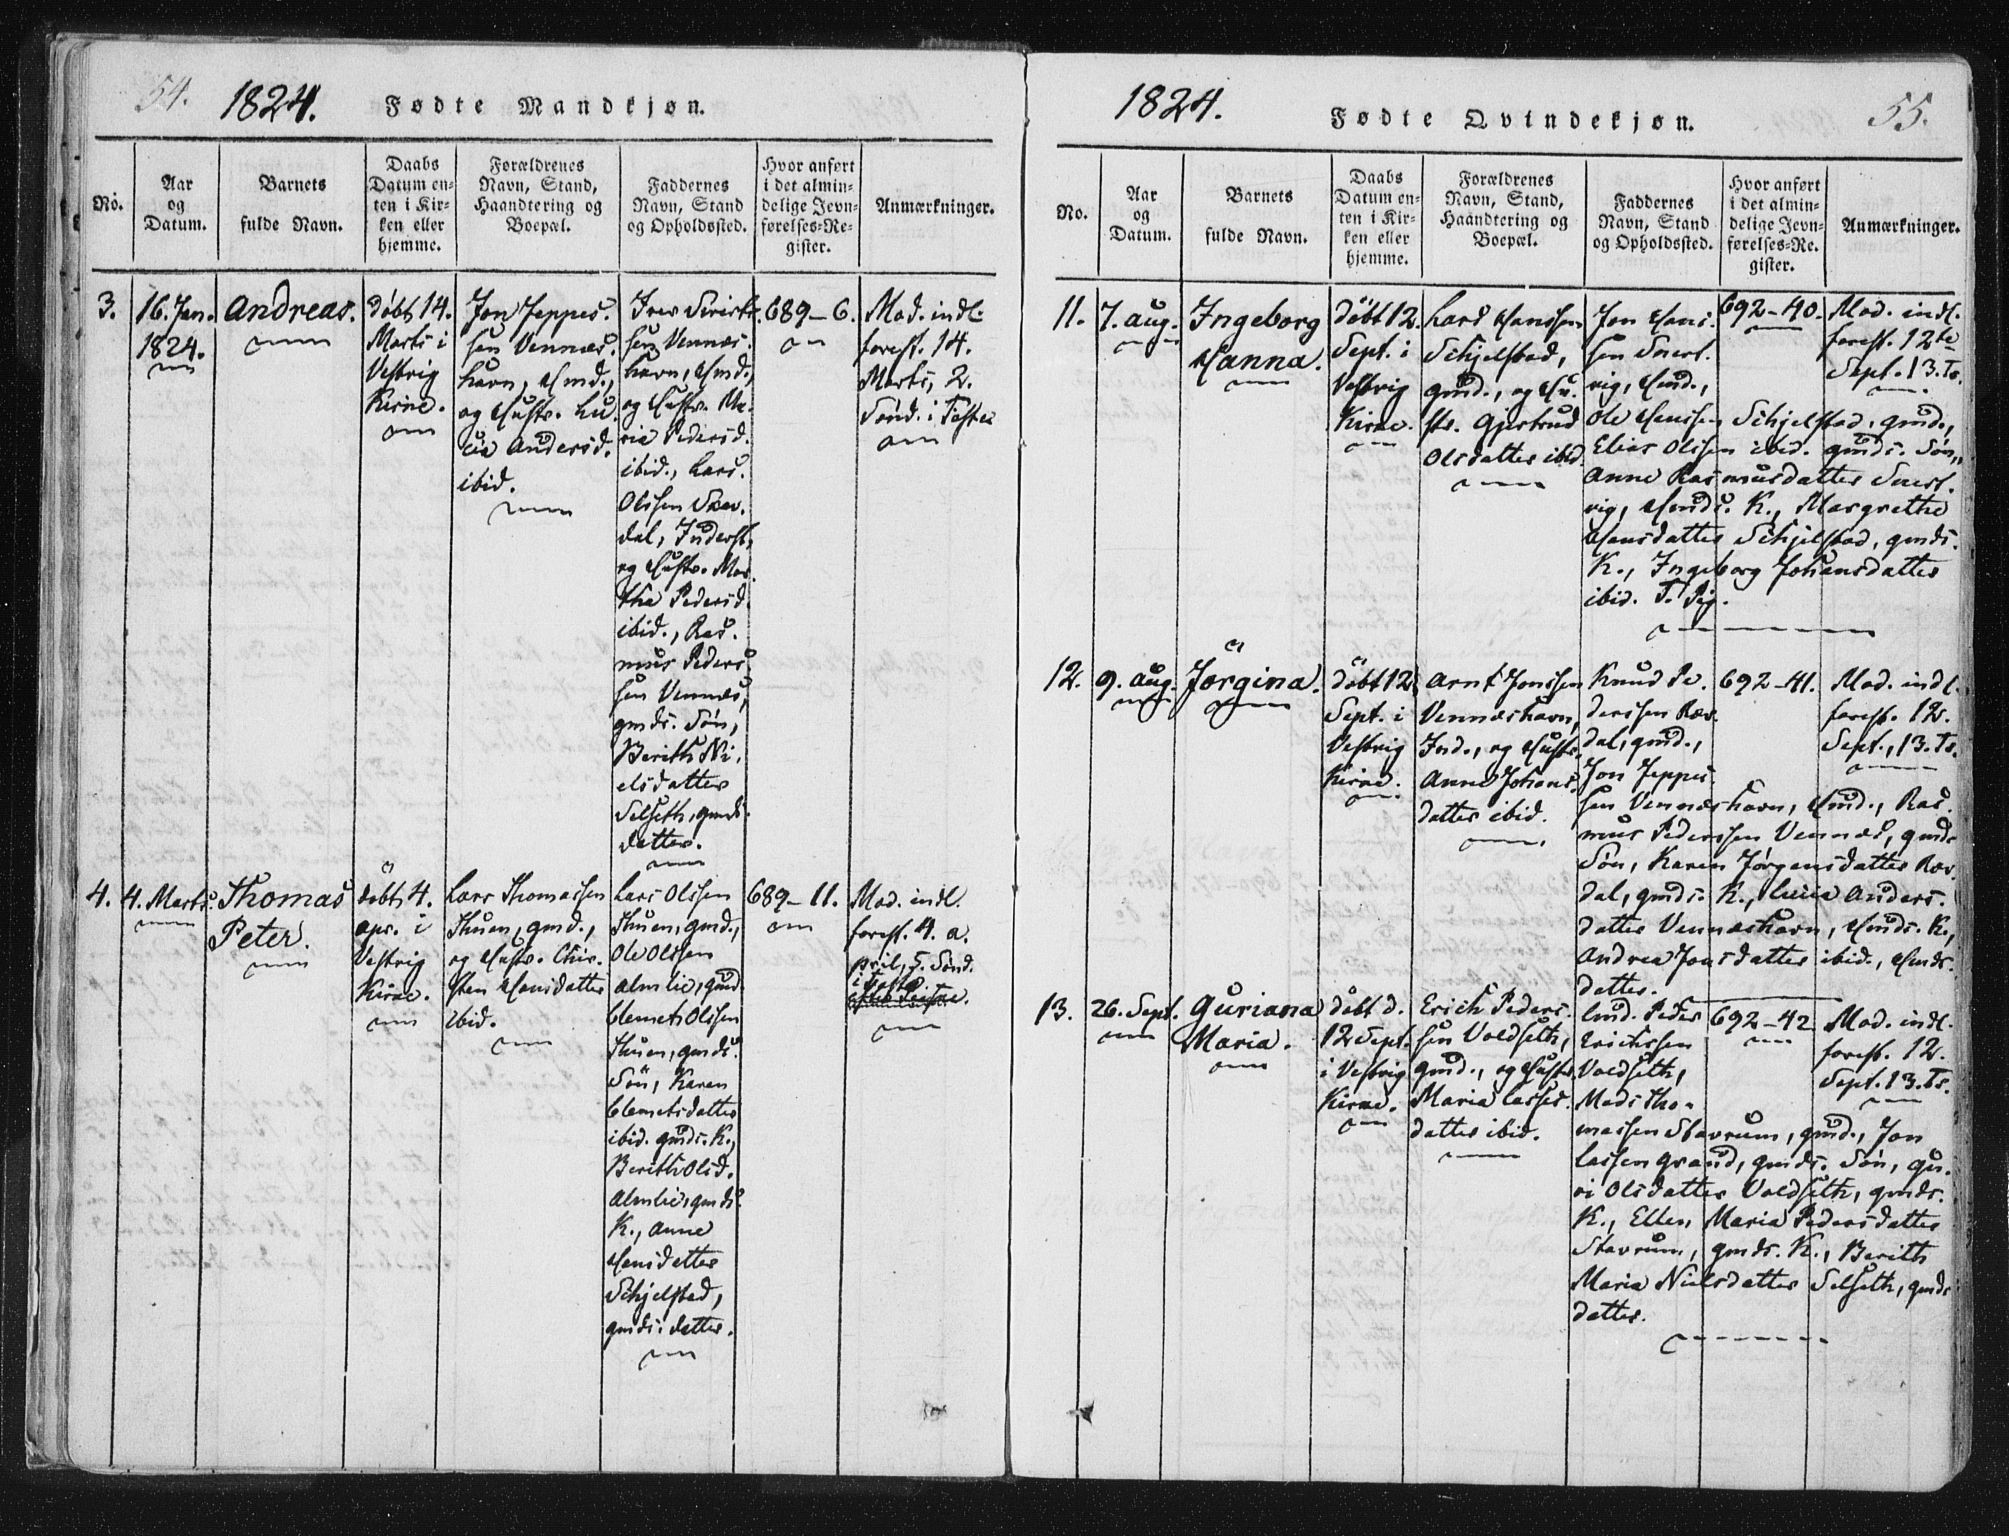 54. 1824. Fødte Mandkjøn.
No.
Aar
og
Datum.
Barnets
fulde Navn.
Daabs
Datum en-
ten i Kir-
ken eller
hjemme.
Forældrenes
Navn, Stand,
Haandtering og
Boepæl.
Faddernes
Navn, Stand
og Opholdssted.
Hvor anført
i det almin-
delige Jevn-
førelses-Re-
gister.
Anmærkninger.
3.
16. Jan.
1824.
Andreas.
døbt 14.
Marts i
Vestvig
Kirke.
Jon Jeppes.
sen Vennes.
havn, Hmd.,
og Hustr. Lu.
cia Andersd.
ibid.
sen Vennes.
havn, Hmd.,
og Hustr. Ma.
ria Pedersd.
ibid., Lars.
Olssen
dal, Inderst,
og Hustr. Mar.
tha Pedersd.
ibid., Ras.
mus Peders
sen Vennes,
gmds. Søn,
Berith Ni.
elsdatter
Selseth, gmds.
datter.
689-6.
Mod. indl.
forest. 14.
Marts, 2.
Sønd. i Faste
4.
4. Marts.
Thomas
Peter.
døbt 4.
apr. i
Vestvig
Kirke.
Lars Thomassen
Thuen, gmd.,
og Hustr. Chir.
sten Hansdatter
ibid.
Lars Olssen
Thuen, gmd.,
Ole Olssen
Almlie, gmd.
Clemet Olssen
Thuen, gmds.
Søn, Karen
Clemetsdatter
ibid. gmds. K.,
Berith Olsd.
Almlie, gmds.
K., Anne
Hansdatter
Schjelstad,
gmds. datter.
689-11.
Mod. indl.
forest. 4. a.
pril, 5. Sønd.
i Faste.
1824. Fødte Qvindekjøn. 55.
No.
Aar
og
Datum.
Barnets
fulde Navn.
Daabs
Datum en-
ten i Kir-
ken eller
hjemme.
Forældrenes
Navn, Stand,
Haandtering og
Boepæl.
Faddernes
Navn, Stand
og Opholdssted.
Hvor anført
i det almin-
delige Jevn-
førelses-Re-
gister.
Anmærkninger.
11.
7. aug.
Ingeborg
Hanna.
døbt 12.
Sept. i
Vestvig
Kirke.
Lars Hanssen
Schjelstad,
gmd., og Hu.
str. Gjertrud
Olsdatter ibid.
Jon Hans.
sen
vig, Hmd.,
Ole Hanssen Schjelstad, gmd.,
Elias Olssen ibid. gmds. Søn,
Anne Rasmusdatter
vig, Hmds. K., Margrethe
Hansdatter Schjelstad, gmds.
K., Ingeborg Johansdatter
ibid. T. Pig.
692-40.
Mod. indl.
forest. 12te
Sept. 13. Tr.
12.
9. aug.
Jørgina.
døbt 12
Sept. i
Vestvig
Kirke.
Arnt Jonssen
Venneshavn,
Ind., og Hustr.
Anne Johans.
datter ibid.
Knud Pe.
derssen Rør.
dal, gmd.,
Jon Jeppes.
sen Venneshavn, Hmd., Ras.
mus Pederssen Vennes, gmds
Søn, Karen Jørgensdatter Rør.
dal, gmds. K., Lucia Anders.
datter Venneshavn, Hmds. K.,
Andrea Jonsdatter ibid., Hmds.
datter.
692-41.
Mod. indl.
forest. 12.
Sept., 13. Tr.
13.
26. Sept.
Guriana
Maria.
døbt d.
12 Sept.
i Vestvig
Kirke.
Erich Peders.
sen Voldseth,
gmd., og Hustr.
Maria Lasses.
datter ibid.
Ind. Peder
Erichssen
Voldseth,
Mads Tho.
massen Stavrum, gmd., Jon
Lassen Grand, gmds. Søn, Gu.
ri Olsdatter Voldseth, gmds.
K., Ellen Maria Pedersdatter
Stavrum, gmds. K., Berith
Maria Nielsdatter Selseth, gmds
datter.
692-42
Mod. indl.
forest. 12.
Sept. 13. Tr.